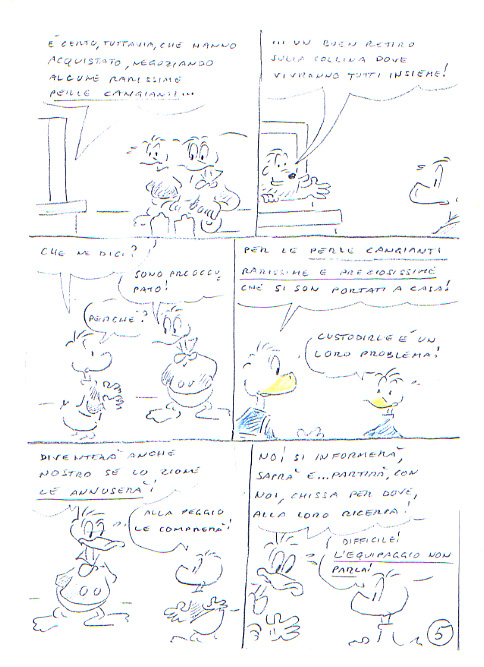 È CERTO, TUTTAVIA, CHE HANNO
ACQUISTATO, NEGOZIANDO
ALCUNE RARISSIME
PERLE CANGIANTI...
... UN BUEN RETIRO
SULLA COLLINA DOVE
VIVRANNO TUTTI INSIEME!
CHE NE DICI?
SONO PREOCCU,
PATO!
PERCHÉ?
PER LE PERLE CANGIANTI
RARISSIME E PREZIOSISSIME
CHE SI SON PORTATI A CASA!
CUSTODIRLE È UN
LORO PROBLEMA!
DIVENTERÀ ANCHE
NOSTRO SE LO ZIONE
LE ANNUSERÀ!
ALLA PEGGIO
LE COMPRERÀ!
NO! SI INFORMERÀ,
SAPRÀ E...PARTIRÀ, CON
NOI, CHISSÀ PER DOVE,
ALLA LORO RICERCA!
DIFFICILE!
L'EQUIPAGGIO NON
PARLA!
5